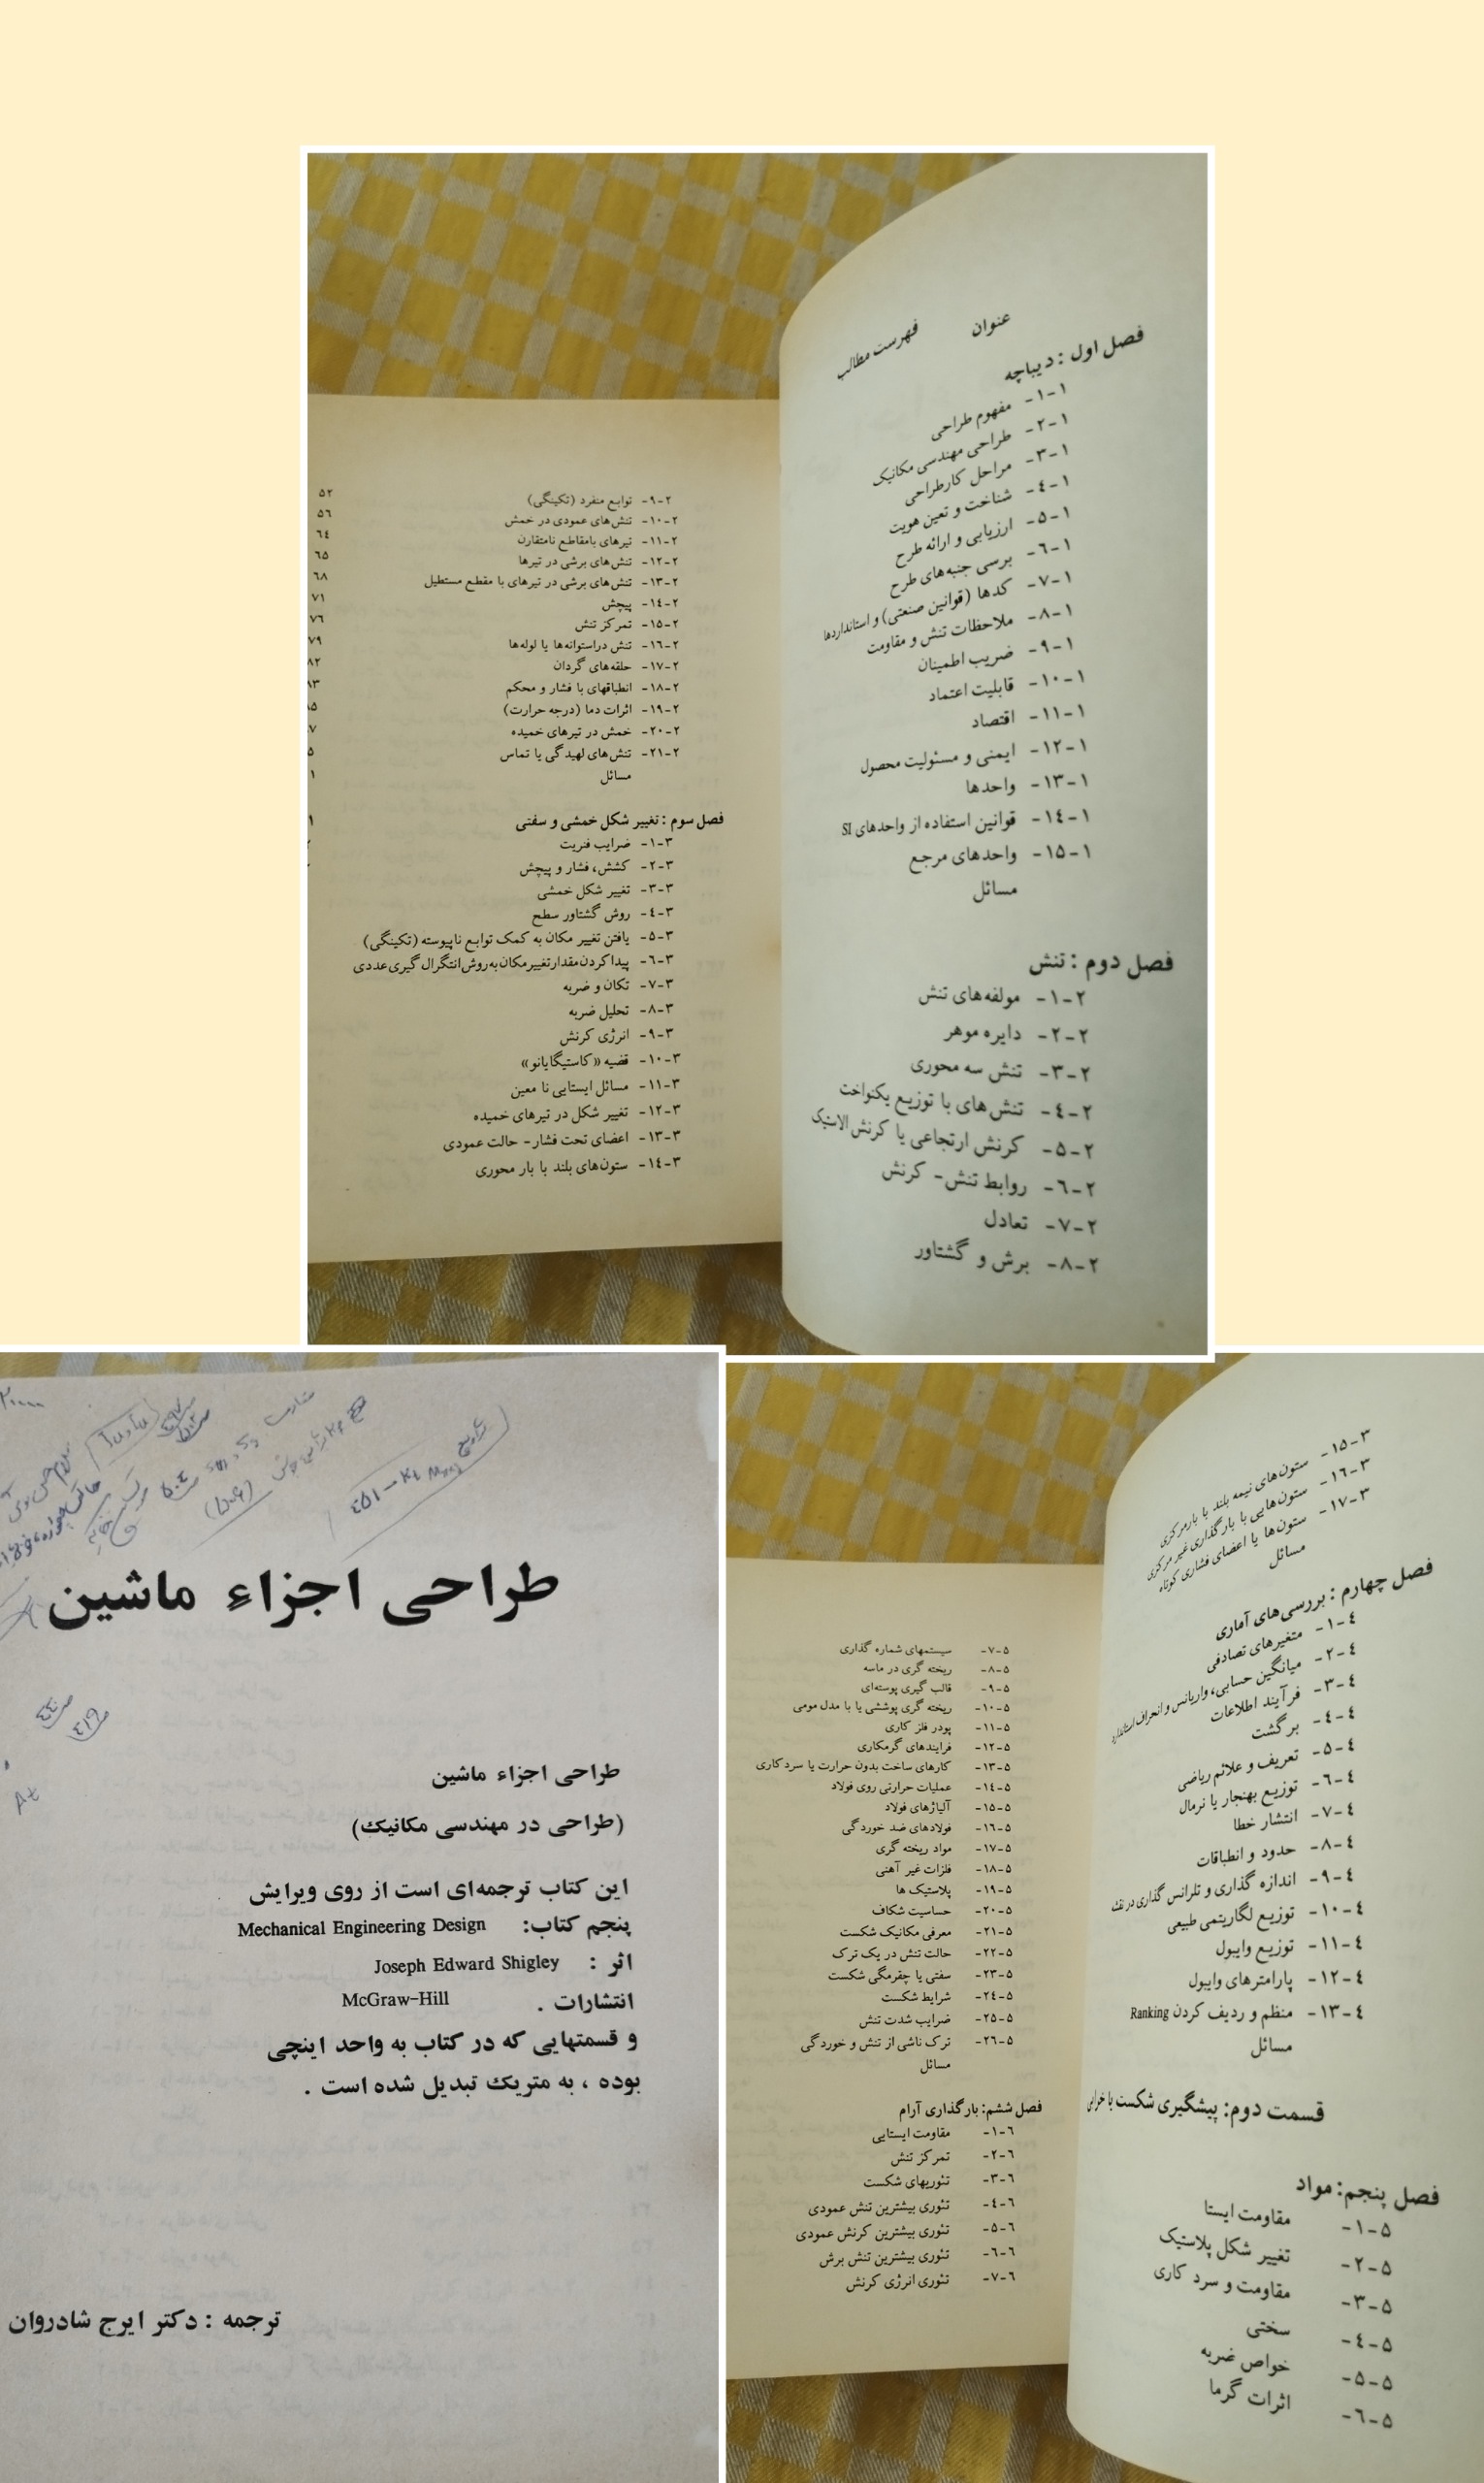 فهرست مطالب
عنوان
فصل اول : دیباچه
۱-۱- مفهوم طراحی
۱-۲- طراحی مهندسی مکانیک
۱-۳- مراحل کارطراحی
۱-٤- شناخت و تعین هویت
۱-۵- ارزیابی و ارائه طرح
۱-٦- برسی جنبه‌های طرح
۱-۷- کدها (قوانین صنعتی) و استانداردها
۱-۸- ملاحظات تنش و مقاومت
۱-۹- ضریب اطمینان
۱-۱۰- قابلیت اعتماد
۱-۱۱- اقتصاد
۱-۱۲- ایمنی و مسئولیت محصول
۱-۱۳- واحدها
۱-۱٤- قوانین استفاده از واحدهای SI
۱-۱۵- واحدهای مرجع
مسائل
فصل دوم : تنش
۲-۱- مولفه‌های تنش
۲-۲- دایره موهر
۲-۳- تنش سه محوری
۲-٤- تنش‌های با توزیع یکنواخت
۲-۵- کرنش ارتجاعی یا کرنش الاستیک
۲-٦- روابط تنش- کرنش
۲-۷- تعادل
۲-۸- برش و گشتاور
۲-۹- توابع منفرد (تکینگی) ۵۲
۲-۱۰- تنش‌های عمودی در خمش ۵٦
۲-۱۱- تیرهای بامقاطع نامتقارن ٦٤
۲-۱۲- تنش‌های برشی در تیرها ٦۵
۲-۱۳- تنش‌های برشی در تیرهای با مقطع مستطیل ٦۸
۲-۱٤- پیچش ۷۱
۲-۱۵- تمرکز تنش ۷٦
۲-۱٦- تنش دراستوانه‌ها یا لوله‌ها ۷۹
۲-۱۷- حلقه‌های گردان ۸۲
۲-۱۸- انطباقهای با فشار و محکم
۲-۱۹- اثرات دما (درجه حرارت)
۲-۲۰- خمش در تیرهای خمیده
۲-۲۱- تنش‌های لهیدگی یا تماس
مسائل
فصل سوم : تغییر شکل خمشی و سفتی
۳-۱- ضرایب فنریت
۳-۲- کشش، فشار و پیچش
۳-۳- تغییر شکل خمشی
۳-٤- روش گشتاور سطح
۳-۵- یافتن تغییر مکان به کمک توابع ناپیوسته (تکینگی)
۳-٦- پیداکردن‌مقدارتغییرمکان‌به‌روش‌انتگرال‌گیری‌عددی
۳-۷- تکان و ضربه
۳-۸- تحلیل ضربه
۳-۹- انرژی کرنش
۳-۱۰- قضیه «کاستیگایانو»
۳-۱۱- مسائل ایستایی نا معین
۳-۱۲- تغییر شکل در تیرهای خمیده
۳-۱۳- اعضای تحت فشار- حالت عمودی
۳-۱٤- ستون‌های بلند با بار محوری
طراحی اجزاء ماشین
طراحی اجزاء ماشین
(طراحی در مهندسی مکانیک)
این کتاب ترجمه‌ای است از روی ویرایش
پنجم کتاب: Mechanical Engineering Design
اثر : Joseph Edward Shigley
انتشارات . McGraw-Hill
و قسمتهایی که در کتاب به واحد اینچی
بوده ، به متریک تبدیل شده است .
ترجمه : دکتر ایرج شادروان
۳-۱۵- ستون‌های نیمه بلند با بارمرکزی
۳-۱٦- ستون‌هایی با بارگذاری غیر مرکزی
۳-۱۷- ستون‌ها یا اعضای فشاری کوتاه
مسائل
فصل چهارم : بررسی‌های آماری
٤-۱- متغیرهای تصادفی
٤-۲- میانگین حسابی، واریانس و انحراف استاندارد
٤-۳- فرآیند اطلاعات
٤-٤- برگشت
٤-۵- تعریف و علائم ریاضی
٤-٦- توزیع بهنجار یا نرمال
٤-۷- انتشار خطا
٤-۸- حدود و انطباقات
٤-۹- اندازه گذاری و تلرانس گذاری در نقشه
٤-۱۰- توزیع لگاریتمی طبیعی
٤-۱۱- توزیع وایبول
٤-۱۲- پارامترهای وایبول
٤-۱۳- منظم و ردیف کردن Ranking
مسائل
قسمت دوم: پیشگیری شکست یا خرابی
فصل پنجم: مواد
۵-۱- مقاومت ایستا
۵-۲- تغییر شکل پلاستیک
۵-۳- مقاومت و سرد کاری
۵-٤- سختی
۵-۵- خواص ضربه
۵-٦- اثرات گرما
۵-۷- سیستمهای شماره گذاری
۵-۸- ریخته گری در ماسه
۵-۹- قالب گیری پوسته‌ای
۵-۱۰- ریخته گری پوششی یا با مدل مومی
۵-۱۱- پودر فلز کاری
۵-۱۲- فرایندهای گرمکاری
۵-۱۳- کارهای ساخت بدون حرارت یا سردکاری
۵-۱٤- عملیات حرارتی روی فولاد
۵-۱۵- آلیاژهای فولاد
۵-۱٦- فولادهای ضد خوردگی
۵-۱۷- مواد ریخته گری
۵-۱۸- فلزات غیر آهنی
۵-۱۹- پلاستیک ها
۵-۲۰- حساسیت شکاف
۵-۲۱- معرفی مکانیک شکست
۵-۲۲- حالت تنش در یک ترک
۵-۲۳- سفتی یا چقرمگی شکست
۵-۲٤- شرایط شکست
۵-۲۵- ضرایب شدت تنش
۵-۲٦- ترک ناشی از تنش و خوردگی
مسائل
فصل ششم: بارگذاری آرام
٦-۱- مقاومت ایستایی
٦-۲- تمرکز تنش
٦-۳- تئوریهای شکست
٦-٤- تئوری بیشترین تنش عمودی
٦-۵- تئوری بیشترین کرنش عمودی
٦-٦- تئوری بیشترین تنش برش
٦-۷- تئوری انرژی کرنش